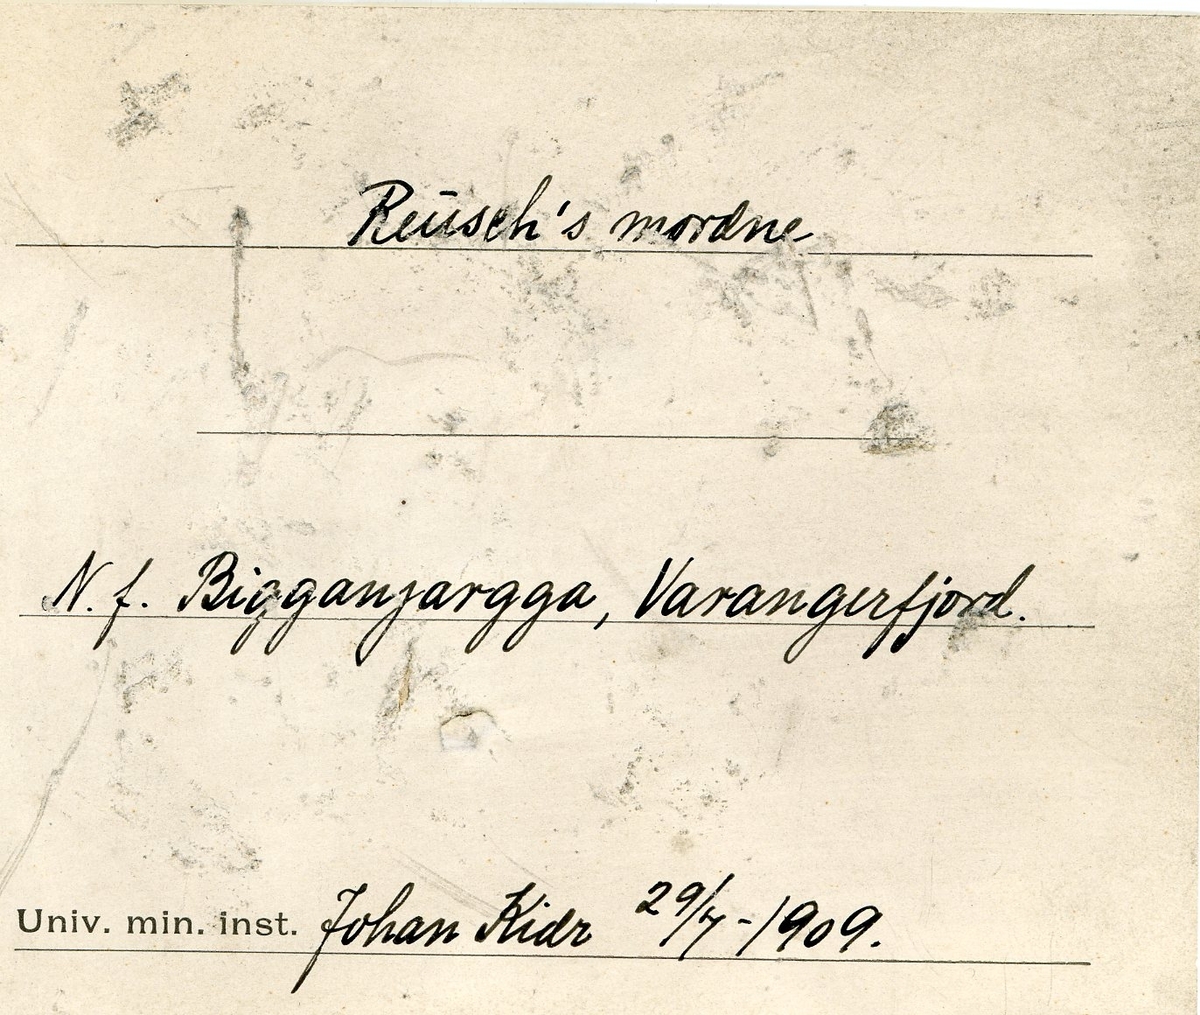 Reusch's mordne
N. f. Bigganjargga, Varangerfjord.
Univ. min. inst. Johan Kiær 29/7-1909.